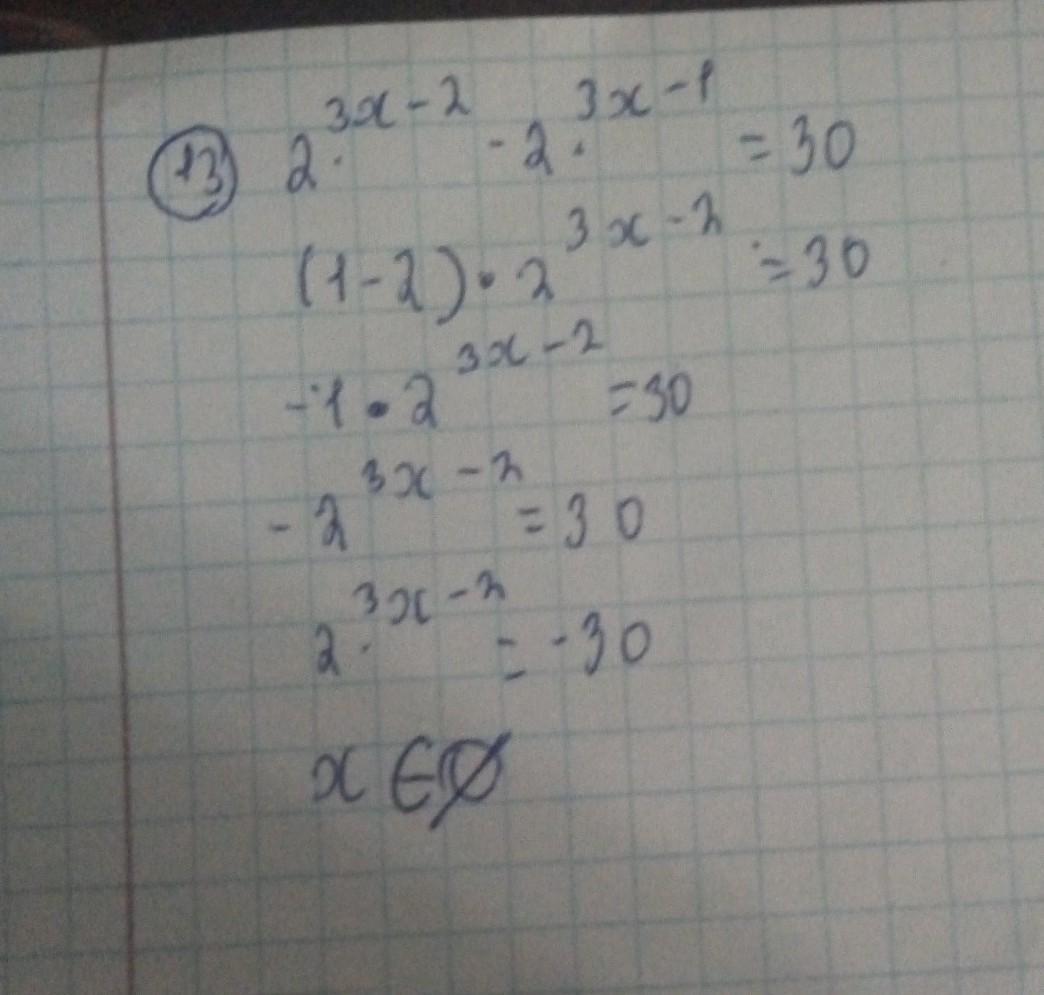 13) 2^{3x-2} - 2^{3x-1} = 30
(1-2)·2^{3x-2} = 30
-1·2^{3x-2} = 30
-2^{3x-2} = 30
2^{3x-2} = -30
x ∈ ∅